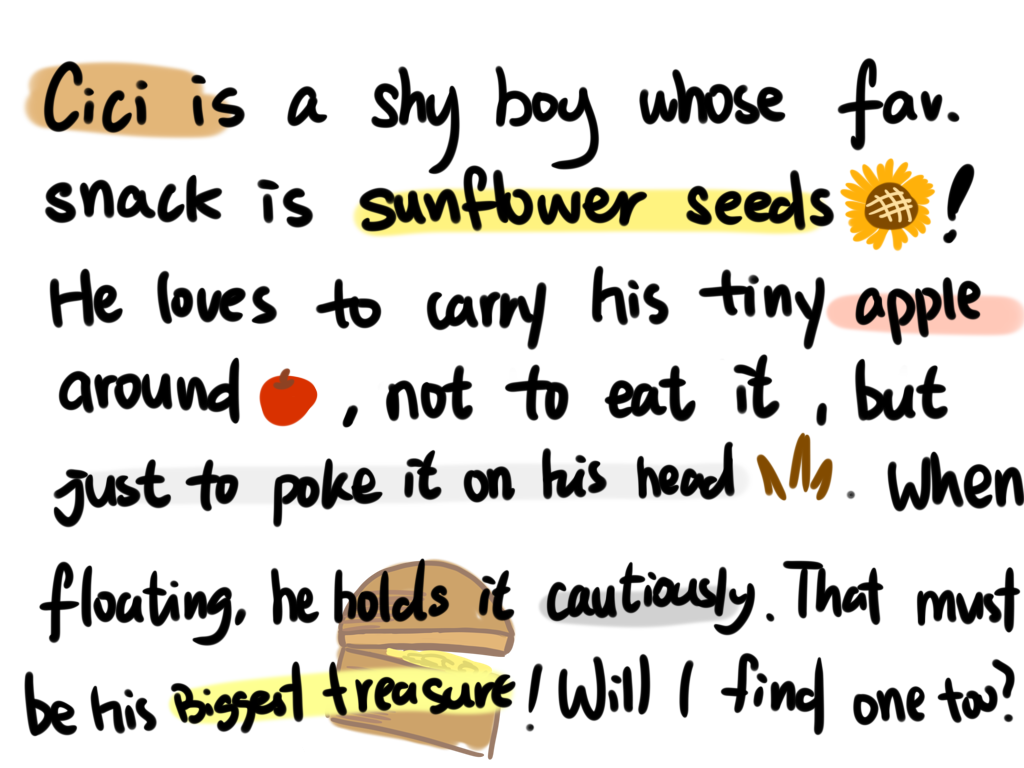 Cici is a shy boy whose fav.
snack is sunflower seeds !
He loves to carry his tiny apple
around , not to eat it , but
just to poke it on his head . When
floating, he holds it cautiously. That must
be his Biggest treasure! Will I find one too?